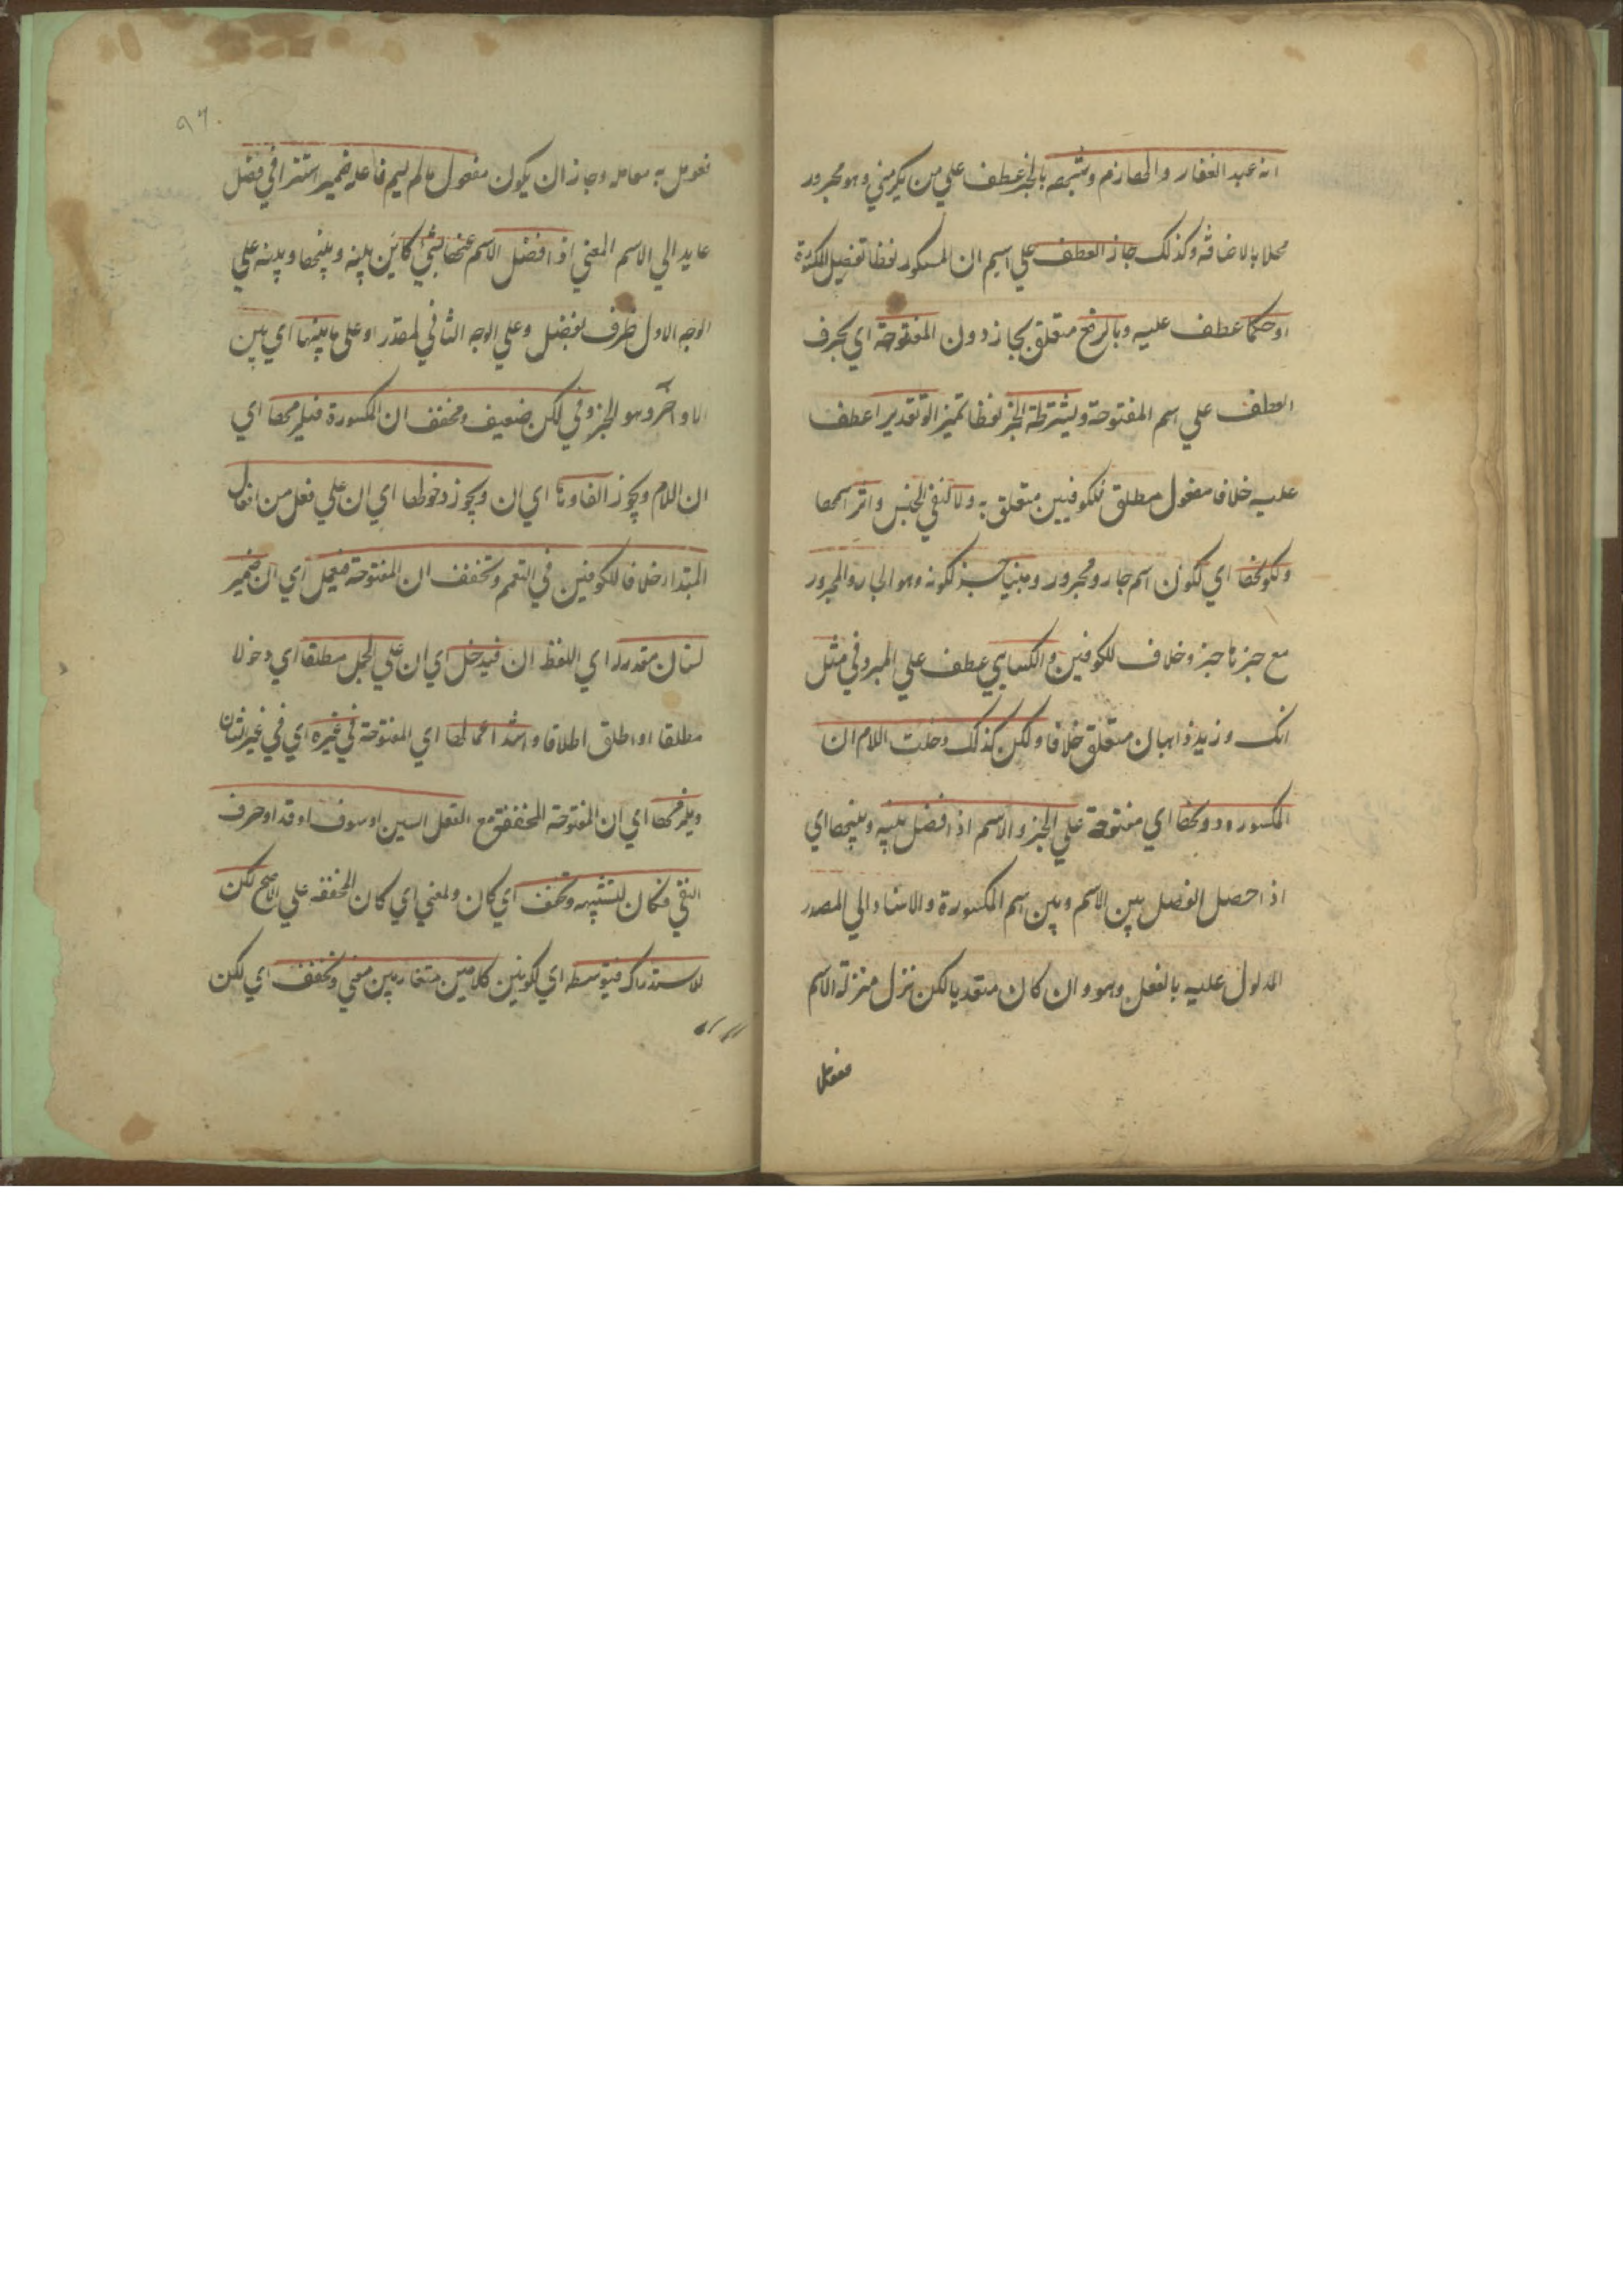 انه عبد الغفار واللهازم وشبهه بالجر عطف علي من يكرمني وهو مجرور
محلا بالاضافة وكذلك جاز العطف علي اسم ان المكسور لفظا تفصيل للكسورة
او حكما عطف عليه وبالرفع متعلق بجاز دون المفتوحة اي بحرف
العطف علي اسم المفتوحة ويشترط الخبر لفظا تميز او تقديرا عطف
عليه خلافا مفعول مطلق للكوفيين متعلق به ولا لنفي الجنس واثر اسمها
ولكونها اي لكون اسم جار ومجرور ومبنيا خبر لكونه وهو الجار والمجرور
مع خبر ما خبر وخلاف للكوفيين والكسايي عطف علي المبرد في مثل
انك وزيد ذاهبان متعلق خلافا ولكن كذلك دخلت اللام ان
المكسورة دونها اي مفتوحة علي الخبر والاسم اذا فصل بينه وبينها اي
اذا حصل الفصل بين الاسم وبين اسم المكسورة والاسناد الي المصدر
المدلول عليه بالفعل وهو وان كان متعديا لكن نزل منزلة الاسم
فعومل
٩٦
فعومل به معامله وجاز ان يكون مفعول ما لم يسم فاعله ضمير استتر في فصل
عايد الي الاسم المعني اذا فصل الاسم عنها بشئ كاين بينه وبينها وبينه علي
الوجه الاول ظرف لفصل وعلي الوجه الثاني لمقدر او علي ما بينها اي بين
الاواخر وهو الخبر وفي لكن ضعيف ومخفف ان المكسورة فيلزمها اي
ان اللام ويجوز الغاوها اي ان ويجوز دخولها اي ان علي فعل من افعال
المبتدا خلافا للكوفين في التعميم وتخفف ان المفتوحة فيعمل اي ان ضمير
لشان مقدر اي اللفظ ان فيدخل اي ان علي الجمل مطلقا اي دخولا
مطلقا او اطلق اطلاقا وشذ اعمالها اي المفتوحة في غيره اي في غير الشان
ويلزمها اي ان المفتوحة المخففة مع الفعل السين او سوف او قد او حرف
النفي فكان للتشبيه وتخفف اي كان ولمغني اي كان المخففه علي الاصح لكن
للاستدراك فيتوسطه اي لكون بين كلامين متغايرين معني وتخفف اي لكن